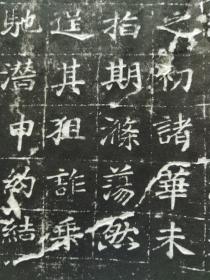 之初諸華未
指期滌蕩然
逞其狙詐乘
馳潛申約結